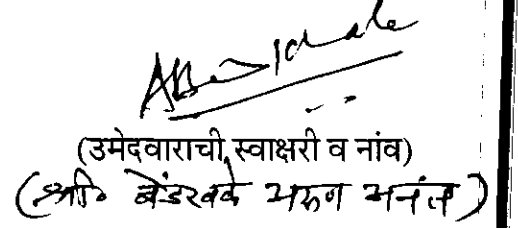 (उमेदवाराची स्वाक्षरी व नांव)
(श्री. बेंडखळे अरुण अनंत)